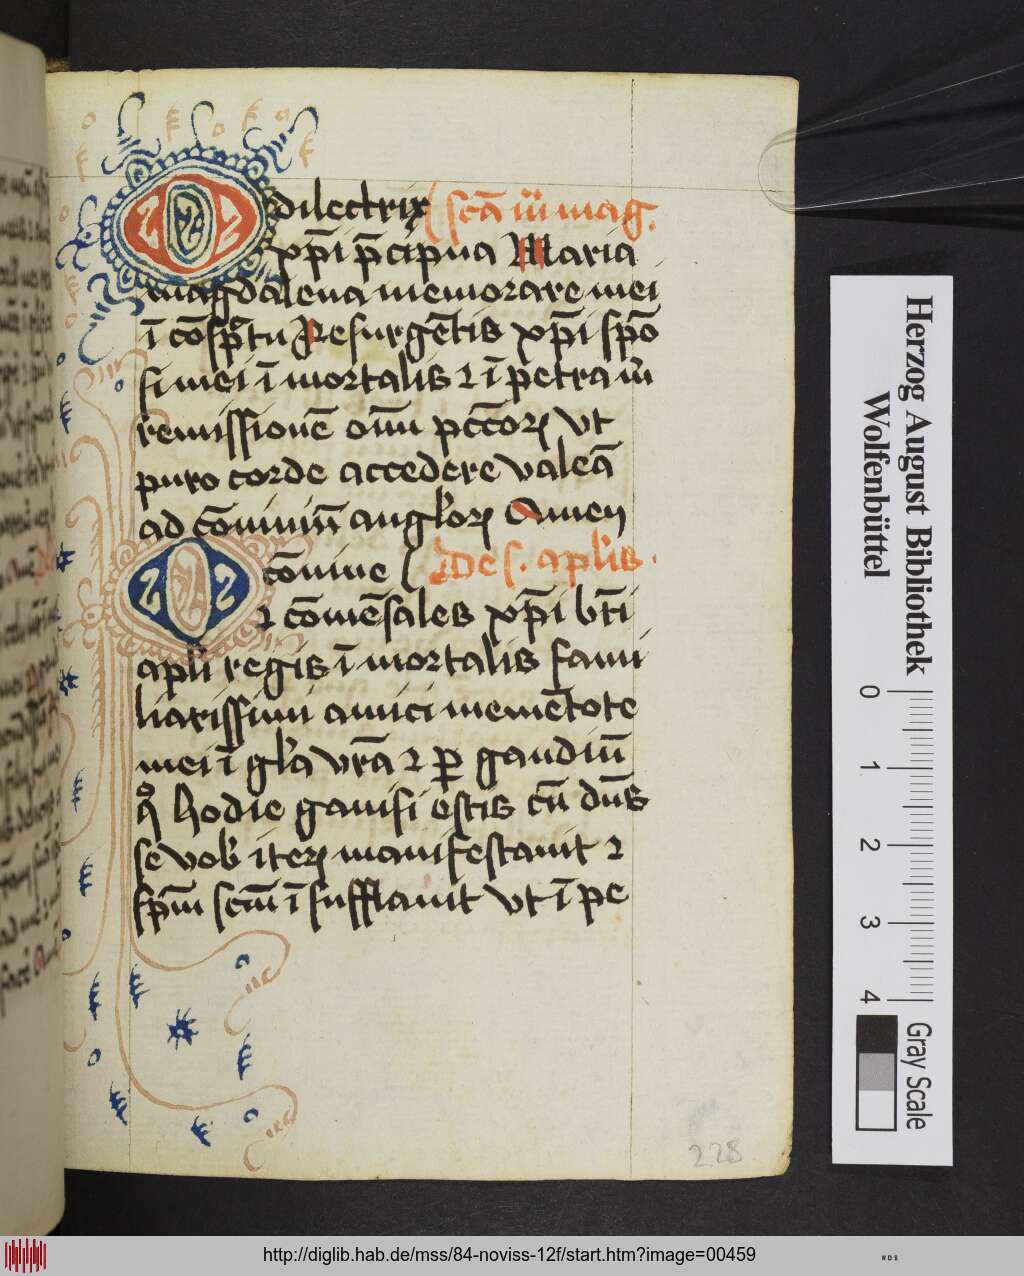 O dilectrix scā m̄ mag.
xp̄i p̄cipua Maria
magdalena memorare mei
ī cōspc̄tu Resurgētis xp̄i spō
si mei īmortalis ⁊ īpetra m̄
remissionē oīm pctōꝝ vt
puro corde accedere valeā
ad cōuiuiū angl'oꝝ Amen
O cōuiue De s. apl'is.
⁊ cōmēsales xp̄i bt̄i
apl'i regis īmortalis fami
liarissimi amici memētote
mei ī gl'a vr̄a ⁊ ꝑ gaudiū
qͦ hodie gauisi estis cū dn̄s
se vob' iteꝝ manifestauit ⁊
sp̄m scm̄ īsufflauit vt īpe
228
Herzog August Bibliothek
Wolfenbüttel
0 1 2 3 4
Gray Scale
http://diglib.hab.de/mss/84-noviss-12f/start.htm?image=00459